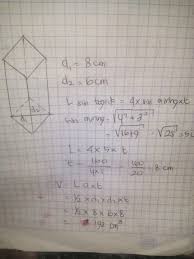 d₁ = 8 cm
d₂ = 6 cm
L sisi tegak = 4 x sisi miring x t
sisi miring = √4² + 3²
= √16+9 = √25 = 5
L = 4 x 5 x t
t = 160 / 4x5 = 160 / 20 = 8 cm
V = La x t
= ½ x d₁ x d₂ x t
= ½ x 8 x 6 x 8
= 192 cm³